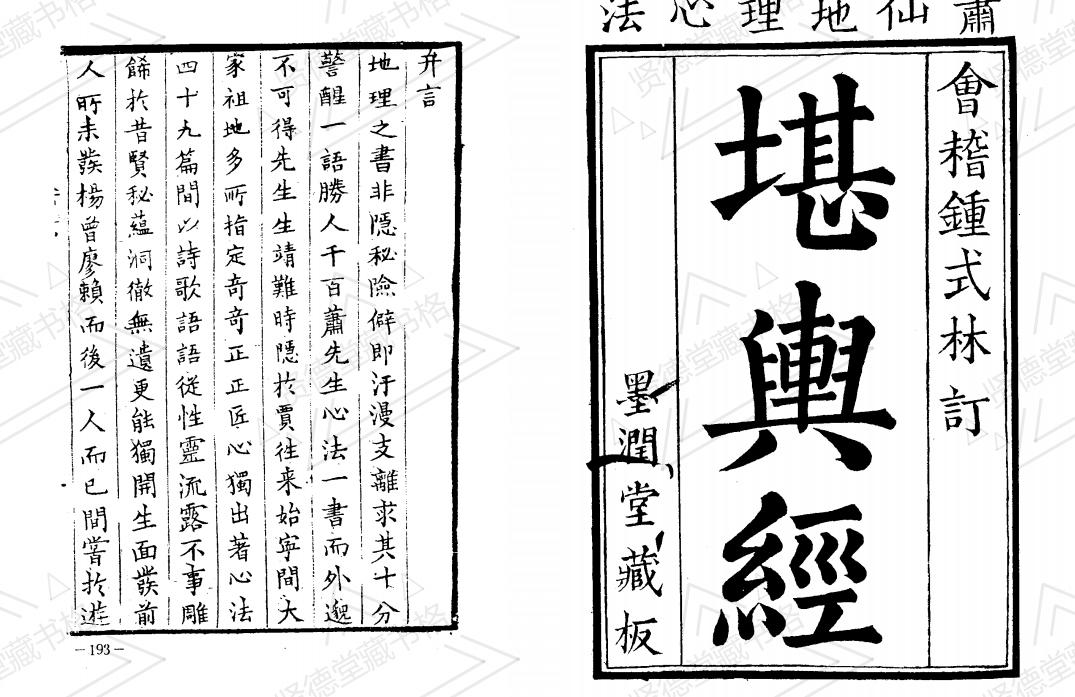 蕭仙地理心法
會稽鍾式林訂
堪輿經
墨潤堂藏板
弁言
地理之書非隱秘險僻即汗漫支離求其十分
警醒一語勝人千百蕭先生心法一書而外邈
不可得先生生靖難時隱於賈徃来始寜間大
家祖地多所指定奇奇正正匠心獨出著心法
四十九篇間以詩歌語語從性靈流露不事雕
餙於昔賢秘蘊洞徹無遺更能獨開生面發前
人所未發楊曾廖賴而後一人而已間嘗於遊
—193—
贤德堂藏书格